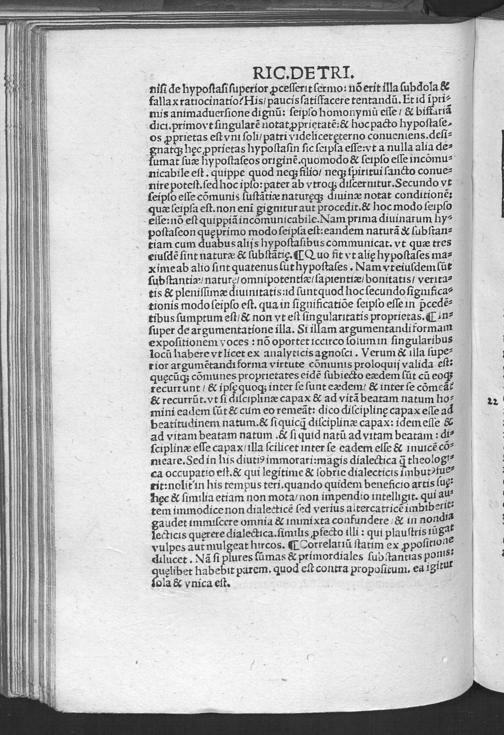 RIC. DE TRI.
nisi de hypostasi superior ꝓcesserit sermo: nō erit illa subdola &
fallax ratiocinatio? His/ paucis satisfacere tentandū. Et id īpri⸗
mis animaduersione dignū: seipso homonymū esse/ & bifariā
dici. primo vt singularē notat ꝓprietatē: & hoc pacto hypostase⸗
os ꝓprietas est vni soli/ patri videlicet ęterno conueniens. desi⸗
gnatq; hęc ꝓprietas hypostasin sic seipsa esse: vt a nulla alia de⸗
sumat suæ hypostaseos originē. quomodo & seipso esse incōmu⸗
nicabile est. quippe quod neq; filio/ neq; spiritui sancto conue⸗
nire potest. sed hoc ipso: pater ab vtroq; discernitur. Secundo vt
seipso esse cōmunis sustātiæ naturęq; diuinæ notat conditionē:
quæ seipsa est. non eni gignitur aut procedit. & hoc modo seipso
esse: nō est quippiā incōmunicabile. Nam prima diuinarum hy⸗
postaseon quęprimo modo seipsa est: eandem naturā & substan⸗
tiam cum duabus alijs hypostasibus communicat. vt quæ tres
eiusdē sint naturæ & substātię. ¶ Quo fit vt alię hypostases ma⸗
xime ab alio sint quatenus sūt hypostases. Nam vt eiusdem sūt
substantiæ/ naturę/ omnipotentiæ/ sapientiæ/ bonitatis/ verita⸗
tis & plenissimæ diuinitatis: id sunt quod hoc secundo significa⸗
tionis modo seipso est. qua in significatiōe seipso esse in p̄cedē⸗
tibus sumptum est/ & non vt est singularitatis proprietas. ¶ In⸗
super de argumentatione illa. Si illam argumentandi formam
expositionem voces: nō oportet iccirco solum in singularibus
locū habere vt licet ex analyticis agnosci. Verum & illa supe⸗
rior argumētandi forma virtute cōmunis proloquij valida est:
quęcūq; cōmunes proprietates eidē subiecto eædem sūt cū eoq;
recurrunt/ & ipsę quoq; inter se sunt eædem/ & inter se cōmeāt
& recurrūt. vt si disciplinæ capax & ad vitā beatam natum ho⸗
mini eadem sūt & cum eo remeāt: dico disciplinę capax esse ad
beatitudinem natum. & si quicq̄ disciplinæ capax: idem esse &
ad vitam beatam natum. & si quid natū ad vitam beatam: di⸗
sciplinæ esse capax/ illa scilicet inter se eadem esse & inuicē cō⸗
meare. Sed in his diutiꝰ immorari: magis dialectica q̄ theologi⸗
ca occupatio est. & qui legitime & sobrie dialecticis imbutꝰ fue⸗
rit: nolit in his tempus teri. quando quidem beneficio artis suę:
hęc & similia etiam non mota/ non impendio intelligit. qui au⸗
tem immodice non dialecticē sed verius altercatricē imbiberit:
gaudet immiscere omnia & immixta confundere/ & in nondia
lecticis quęrere dialectica. similis ꝓfecto illi: qui plaustris iūgat
vulpes aut mulgeat hircos. ¶ Correlariū statim ex ꝓpositione
dilucet. Nā si plures sūmas & primordiales substantias ponis:
quęlibet habebit parem. quod est contra propositum. ea igitur
sola & vnica est.
22